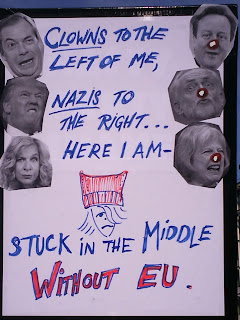 CLOWNS TO THE
LEFT OF ME,
NAZIS TO
THE RIGHT...
HERE I AM-
STUCK IN THE MIDDLE
WITHOUT EU.